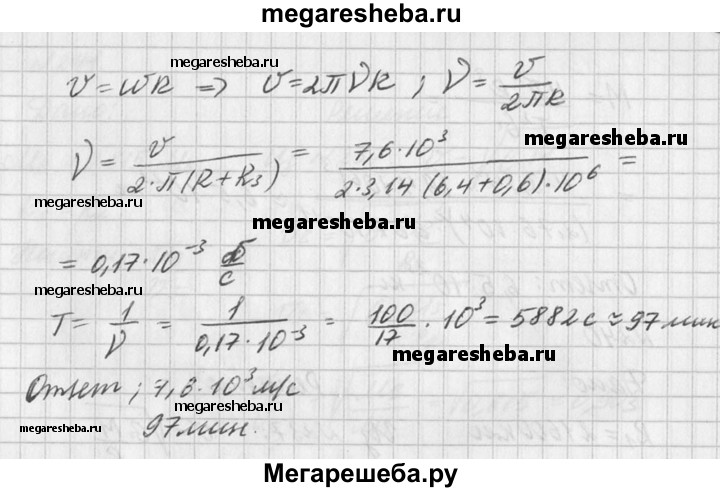 megaresheba.ru
megaresheba.ru
v = ωR => v = 2πνR ; ν = v / 2πR
megaresheba.ru
ν = v / 2·π(R + Rз) = 7,6·10³ / 2·3,14 (6,4+0,6)·10⁶ =
megaresheba.ru
megaresheba.ru
= 0,17·10⁻³ об/с
megaresheba.ru
T = 1/ν = 1 / 0,17·10⁻³ = 100/17 · 10³ = 5882 с ≈ 97 мин
megaresheba.ru
Ответ; 7,6·10³ м/с
megaresheba.ru
97 мин.
megaresheba.ru
Мегарешеба.ру